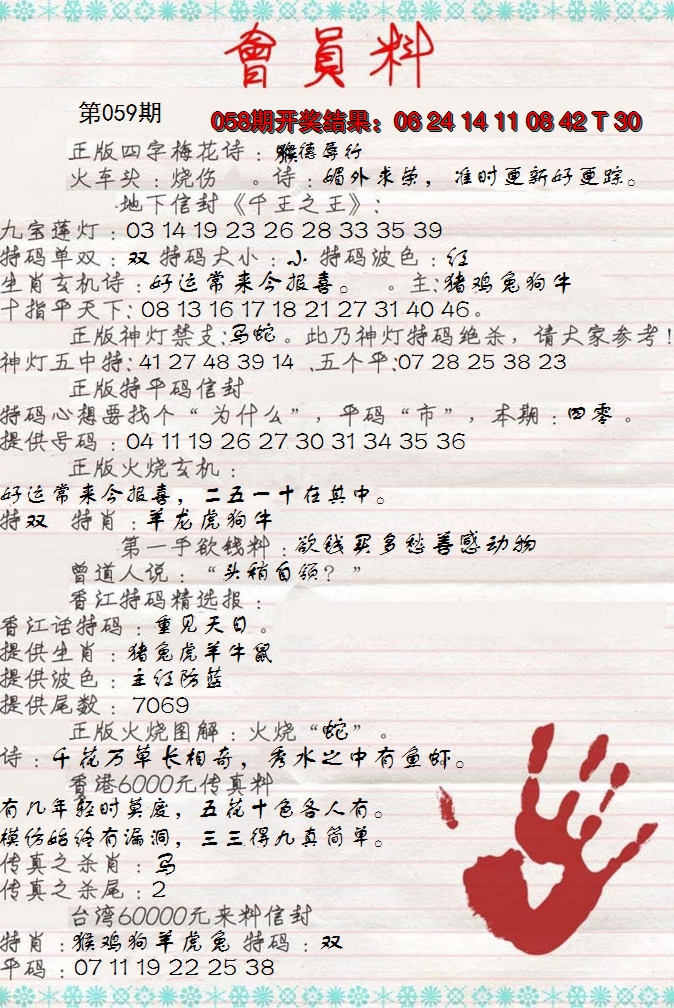 會員料
第059期
058期开奖结果：06 24 14 11 08 42 T 30
正版四字梅花诗：猴德辱行
火车头：烧伤 。诗：媚外求荣，准时更新好更踪。
地下信封《千王之王》：
九宝莲灯：03 14 19 23 26 28 33 35 39
特码单双：双 特码大小：小 特码波色：红
生肖玄机诗：好运常来今报喜。 。主：猪鸡兔狗牛
十指平天下：08 13 16 17 18 21 27 31 40 46。
正版神灯禁支：马蛇。此乃神灯特码绝杀，请大家参考！
神灯五中特：41 27 48 39 14 .五个平：07 28 25 38 23
正版特平码信封
特码心想要找个“为什么”，平码“市”，本期：四零。
提供号码：04 11 19 26 27 30 31 34 35 36
正版火烧玄机：
好运常来今报喜，二五一十在其中。
特双 特肖：羊龙虎狗牛
第一手欲钱料：欲钱买多愁善感动物
曾道人说：“头稍自领？”
香江特码精选报：
香江话特码：重见天日。
提供生肖：猪兔虎羊牛鼠
提供波色：主红防蓝
提供尾数：7069
正版火烧图解：火烧“蛇”。
诗：千花万草长相奇，秀水之中有鱼虾。
香港6000元传真料
有几年轻时莫度，五花十色各人有。
模仿始终有漏洞，三三得九真简单。
传真之杀肖：马
传真之杀尾：2
台湾60000元来料信封
特肖：猴鸡狗羊虎兔 特码：双
平码：07 11 19 22 25 38